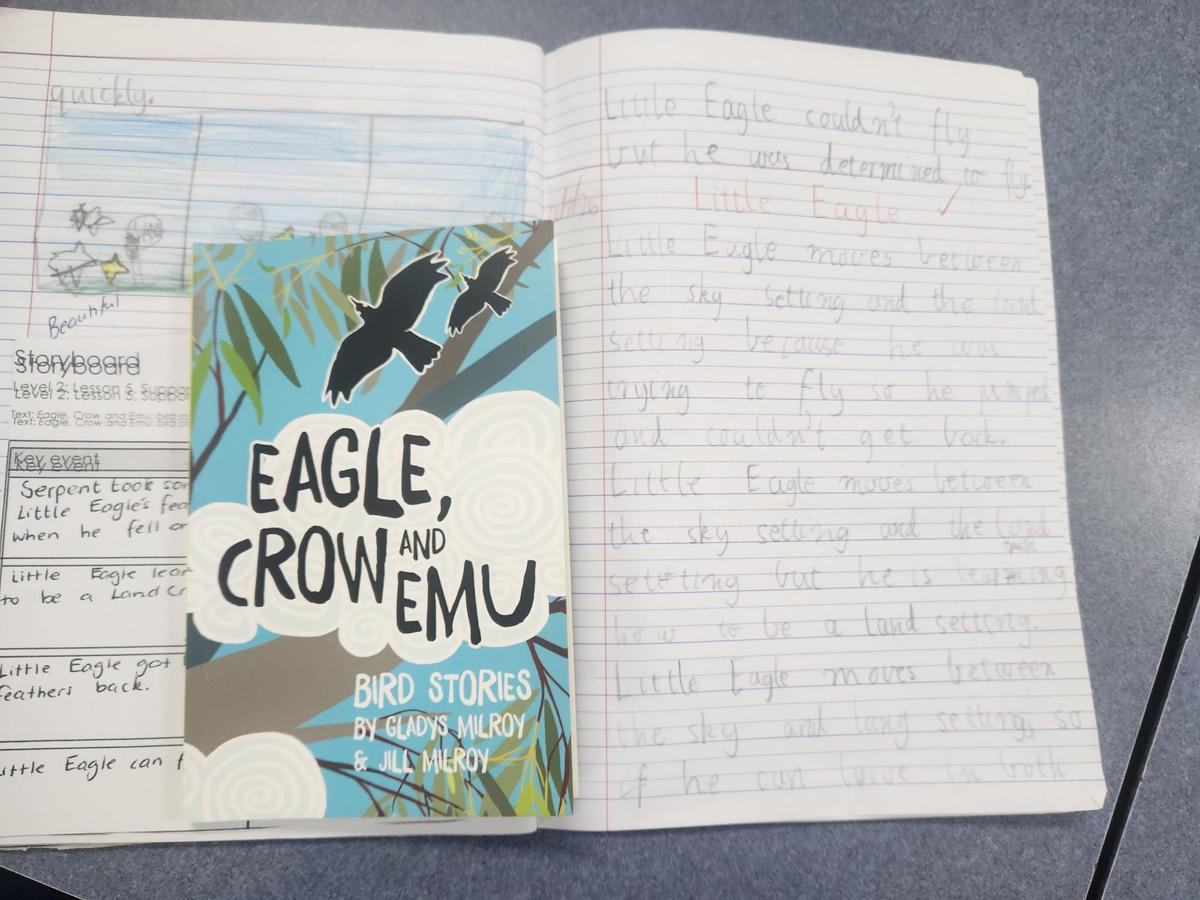 quickly.
Beautiful
Storyboard
Level 2: Lesson 5, Suppor
Text: Eagle, Crow and Emu: bird s
Key event
Serpent took so
Little Eagle's fea
when he fell
Little Eagle lear
to be a Land cr
Little Eagle got
feathers back.
Little Eagle can f
EAGLE,
CROW AND
EMU
BIRD STORIES
BY GLADYS MILROY
& JILL MILROY
Little Eagle couldn't fly
but he was determined to fly.
Little Eagle ✓
Little Eagle moves between
the sky setting and the land
setting because he was
trying to fly so he jumped
and couldn't get back.
Little Eagle moves between
the sky setting and the land
setetting but he is learning
how to be a land setting.
Little Eagle moves between
the sky and lang setting, so
if he can live in both